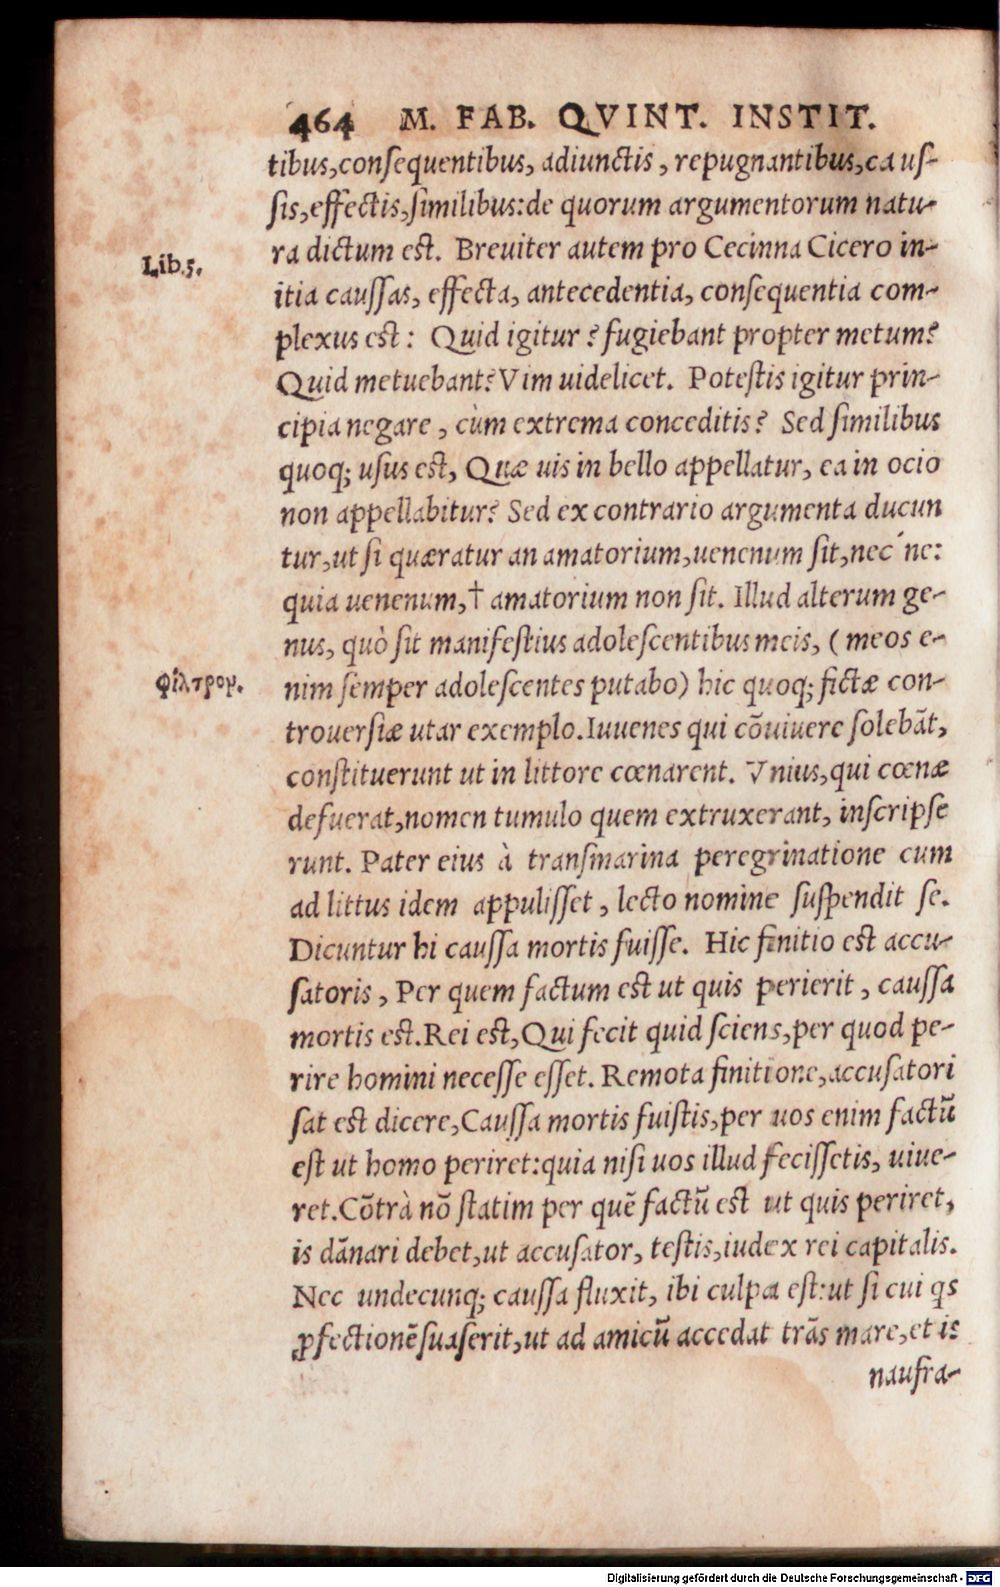 464 M. FAB. QVINT. INSTIT.
tibus,conſequentibus, adiunctis, repugnantibus,cauſ-
ſis,effectis,ſimilibus:de quorum argumentorum natu-
ra dictum est. Breuiter autem pro Cecinna Cicero in-
Lib.5.
itia cauſſas, effecta, antecedentia, conſequentia com-
plexus est: Quid igitur? fugiebant propter metum?
Quid metuebant? Vim uidelicet. Poteſtis igitur prin-
cipia negare, cùm extrema conceditis? Sed ſimilibus
quoq; uſus est, Quæ uis in bello appellatur, ea in ocio
non appellabitur? Sed ex contrario argumenta ducun
tur,ut ſi quæratur an amatorium,uenenum ſit,nec´ne:
quia uenenum,† amatorium non ſit. Illud alterum ge-
nus, quò ſit manifeſtius adoleſcentibus meis, (meos e-
φίλτρον.
nim ſemper adoleſcentes putabo) hic quoq; fictæ con-
trouerſiæ utar exemplo. Iuuenes qui cōuiuere ſolebāt,
conſtituerunt ut in littore cœnarent. Vnius,qui cœnæ
defuerat,nomen tumulo quem extruxerant, inſcripſe
runt. Pater eius à tranſmarina peregrinatione cum
ad littus idem appuliſſet, lecto nomine ſuſpendit ſe.
Dicuntur hi cauſſa mortis fuiſſe. Hic finitio est accu-
ſatoris, Per quem factum est ut quis perierit, cauſſa
mortis est. Rei est, Qui fecit quid ſciens,per quod pe-
rire homini neceſſe eſſet. Remota finitione,accuſatori
ſat est dicere,Cauſſa mortis fuiſtis,per uos enim factū
eſt ut homo periret:quia niſi uos illud feciſſetis, uiue-
ret.Cōtrà nō ſtatim per quē factū est ut quis periret,
is dānari debet,ut accuſator, teſtis,iudex rei capitalis.
Nec undecunq; cauſſa fluxit, ibi culpa est:ut ſi cui qs
ꝓfectionē ſuaſerit,ut ad amicū accedat trās mare,et is
naufra-
Digitalisierung gefördert durch die Deutsche Forschungsgemeinschaft - DFG